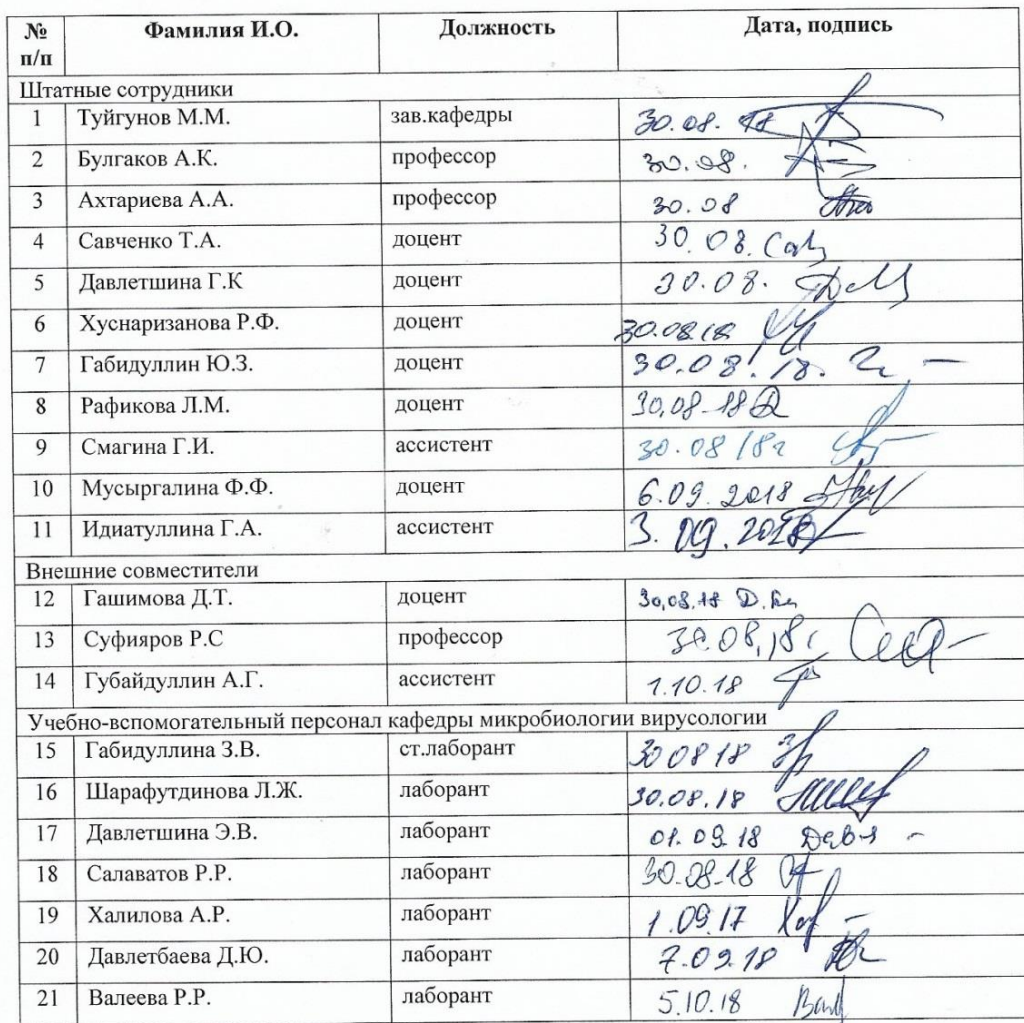 № п/п Фамилия И.О. Должность Дата, подпись
Штатные сотрудники
1 Туйгунов М.М. зав.кафедры 30.08. 18
2 Булгаков А.К. профессор 30.08.
3 Ахтариева А.А. профессор 30.08
4 Савченко Т.А. доцент 30.08. Сав
5 Давлетшина Г.К доцент 30.08.
6 Хуснаризанова Р.Ф. доцент 30.08.18
7 Габидуллин Ю.З. доцент 30.08.18.
8 Рафикова Л.М. доцент 30,08-18
9 Смагина Г.И. ассистент 30.08 18г
10 Мусыргалина Ф.Ф. доцент 6.09.2018
11 Идиатуллина Г.А. ассистент 3.09.2018
Внешние совместители
12 Гашимова Д.Т. доцент 30,08.18
13 Суфияров Р.С профессор 30.08,18г
14 Губайдуллин А.Г. ассистент 1.10.18
Учебно-вспомогательный персонал кафедры микробиологии вирусологии
15 Габидуллина З.В. ст.лаборант 30 08 18
16 Шарафутдинова Л.Ж. лаборант 30.08.18
17 Давлетшина Э.В. лаборант 01.09.18
18 Салаватов Р.Р. лаборант 30.08.18
19 Халилова А.Р. лаборант 1.09.17
20 Давлетбаева Д.Ю. лаборант 7.09.18
21 Валеева Р.Р. лаборант 5.10.18 Вал